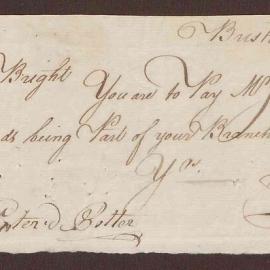 Brist
Bright
You are to Pay Mr
ds being Part of your Branch
Yrs.
Enter'd Potter